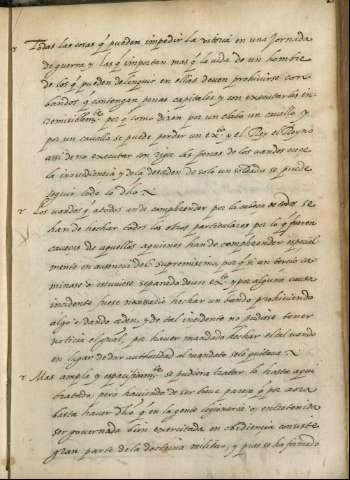 Todas las cosas q̃ pueden impedir la vitoria en una Jornada
de guerra y las q̃ importan mas q̃ la vida de un hombre
de los q̃ pueden delinquir en ellas deven prohivirse con
bandos q̃ contengan penas capitales y con executarlas
por q̃ como dicen por un clabo un cavallo y
por un cavallo se puede perder un exto y el Rey el Reyno
assi de no executar con rigor las penas de los vandos nace
la inovediencia y de la de un soldado se puede
seguir todo lo dho
Los vandos q̃ a todos an de comprehender por la caveza de todos se
han de hechar todos los otros particulares por lo q̃ fueren
cavezas de aquellos aquienes han de comprehender especial
mente en ausencia del supremissimo, por q̃ si un tercio ca
minase o estuviese separado de un exto y por alguna causa
incidente fuese necessario hechar un bando prohiviendo
algo o dando orden, y de tal incidente no pudiese tener
noticia el gral, por haver mandado hechar el tal vando
en lugar de dar authoridad al mandato solo quitava
Mas ampla y especificamte se pudiera tratar lo hasta aqui
tratado, pero haviendo de ser breve parece q̃ por aora
basta haver dho q̃ en la gente
ser governada bien exercitada en obediencia consiste
gran parte de la doctrina militar, y pues se ha formado